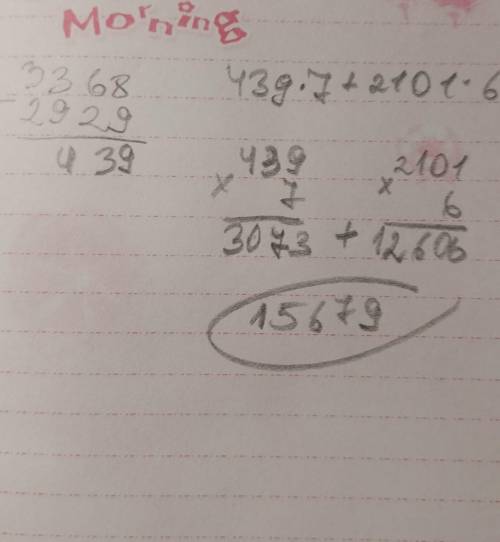 Morning
3368
- 2929
439
439·7+2101·6
439
× 7
3073
+
2101
× 6
12606
15679